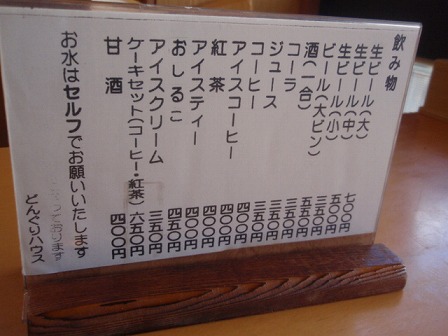 飲み物
生ビール(大) 七〇〇円
生ビール(中) 五〇〇円
生ビール(小) 三五〇円
ビール(大ビン) 五五〇円
酒(一合) 三五〇円
コーラ 三五〇円
ジュース 三五〇円
コーヒー 三五〇円
アイスコーヒー 四〇〇円
紅茶 四〇〇円
アイスティー 四〇〇円
おしるこ 四五〇円
アイスクリーム 三五〇円
ケーキセット(コーヒー・紅茶) 六五〇円
甘酒 四〇〇円
お水はセルフでお願いいたします
どんぐりハウス